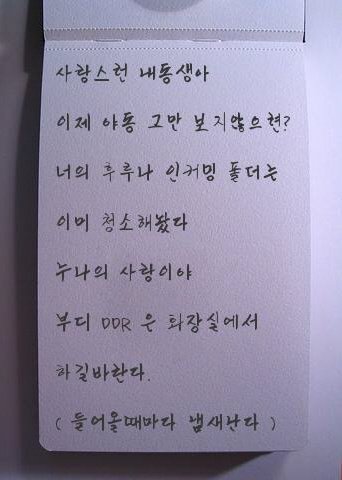 사랑스런 내동생아
이제 야동 그만 보지않으련?
너의 후루나 인커밍 폴더는
이미 청소해놨다
누나의 사랑이야
부디 DDR 은 화장실에서
하길바란다.
( 들어올때마다 냄새난다 )